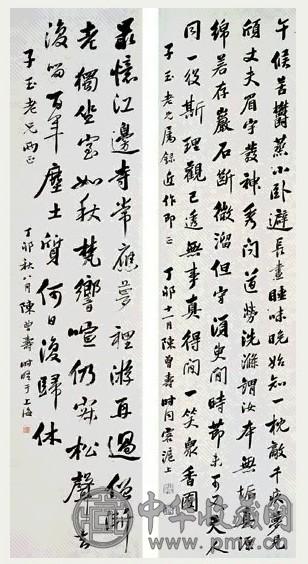 午候苦鬱蒸小卧避長晝睡味晚始知一枕
頎丈夫眉宇發神秀问道勞洗滌謂汝本無垢真源
綿若存巖石斷微溜但守湏臾間時節未
同一役斯理觀已透無事真得閒一笑衆香國
子玉老兄属録近作即正 丁卯十一月陳曾壽時同客滬上
最憶江邊寺常應夢裡游再過僧漸
老獨坐室如秋梵響喧仍寂松聲去
復留百年塵土質何日復歸休
子玉老兄雨正 丁卯秋八月陳曾壽時客于上海
中华收藏网
www.pmcv.cn